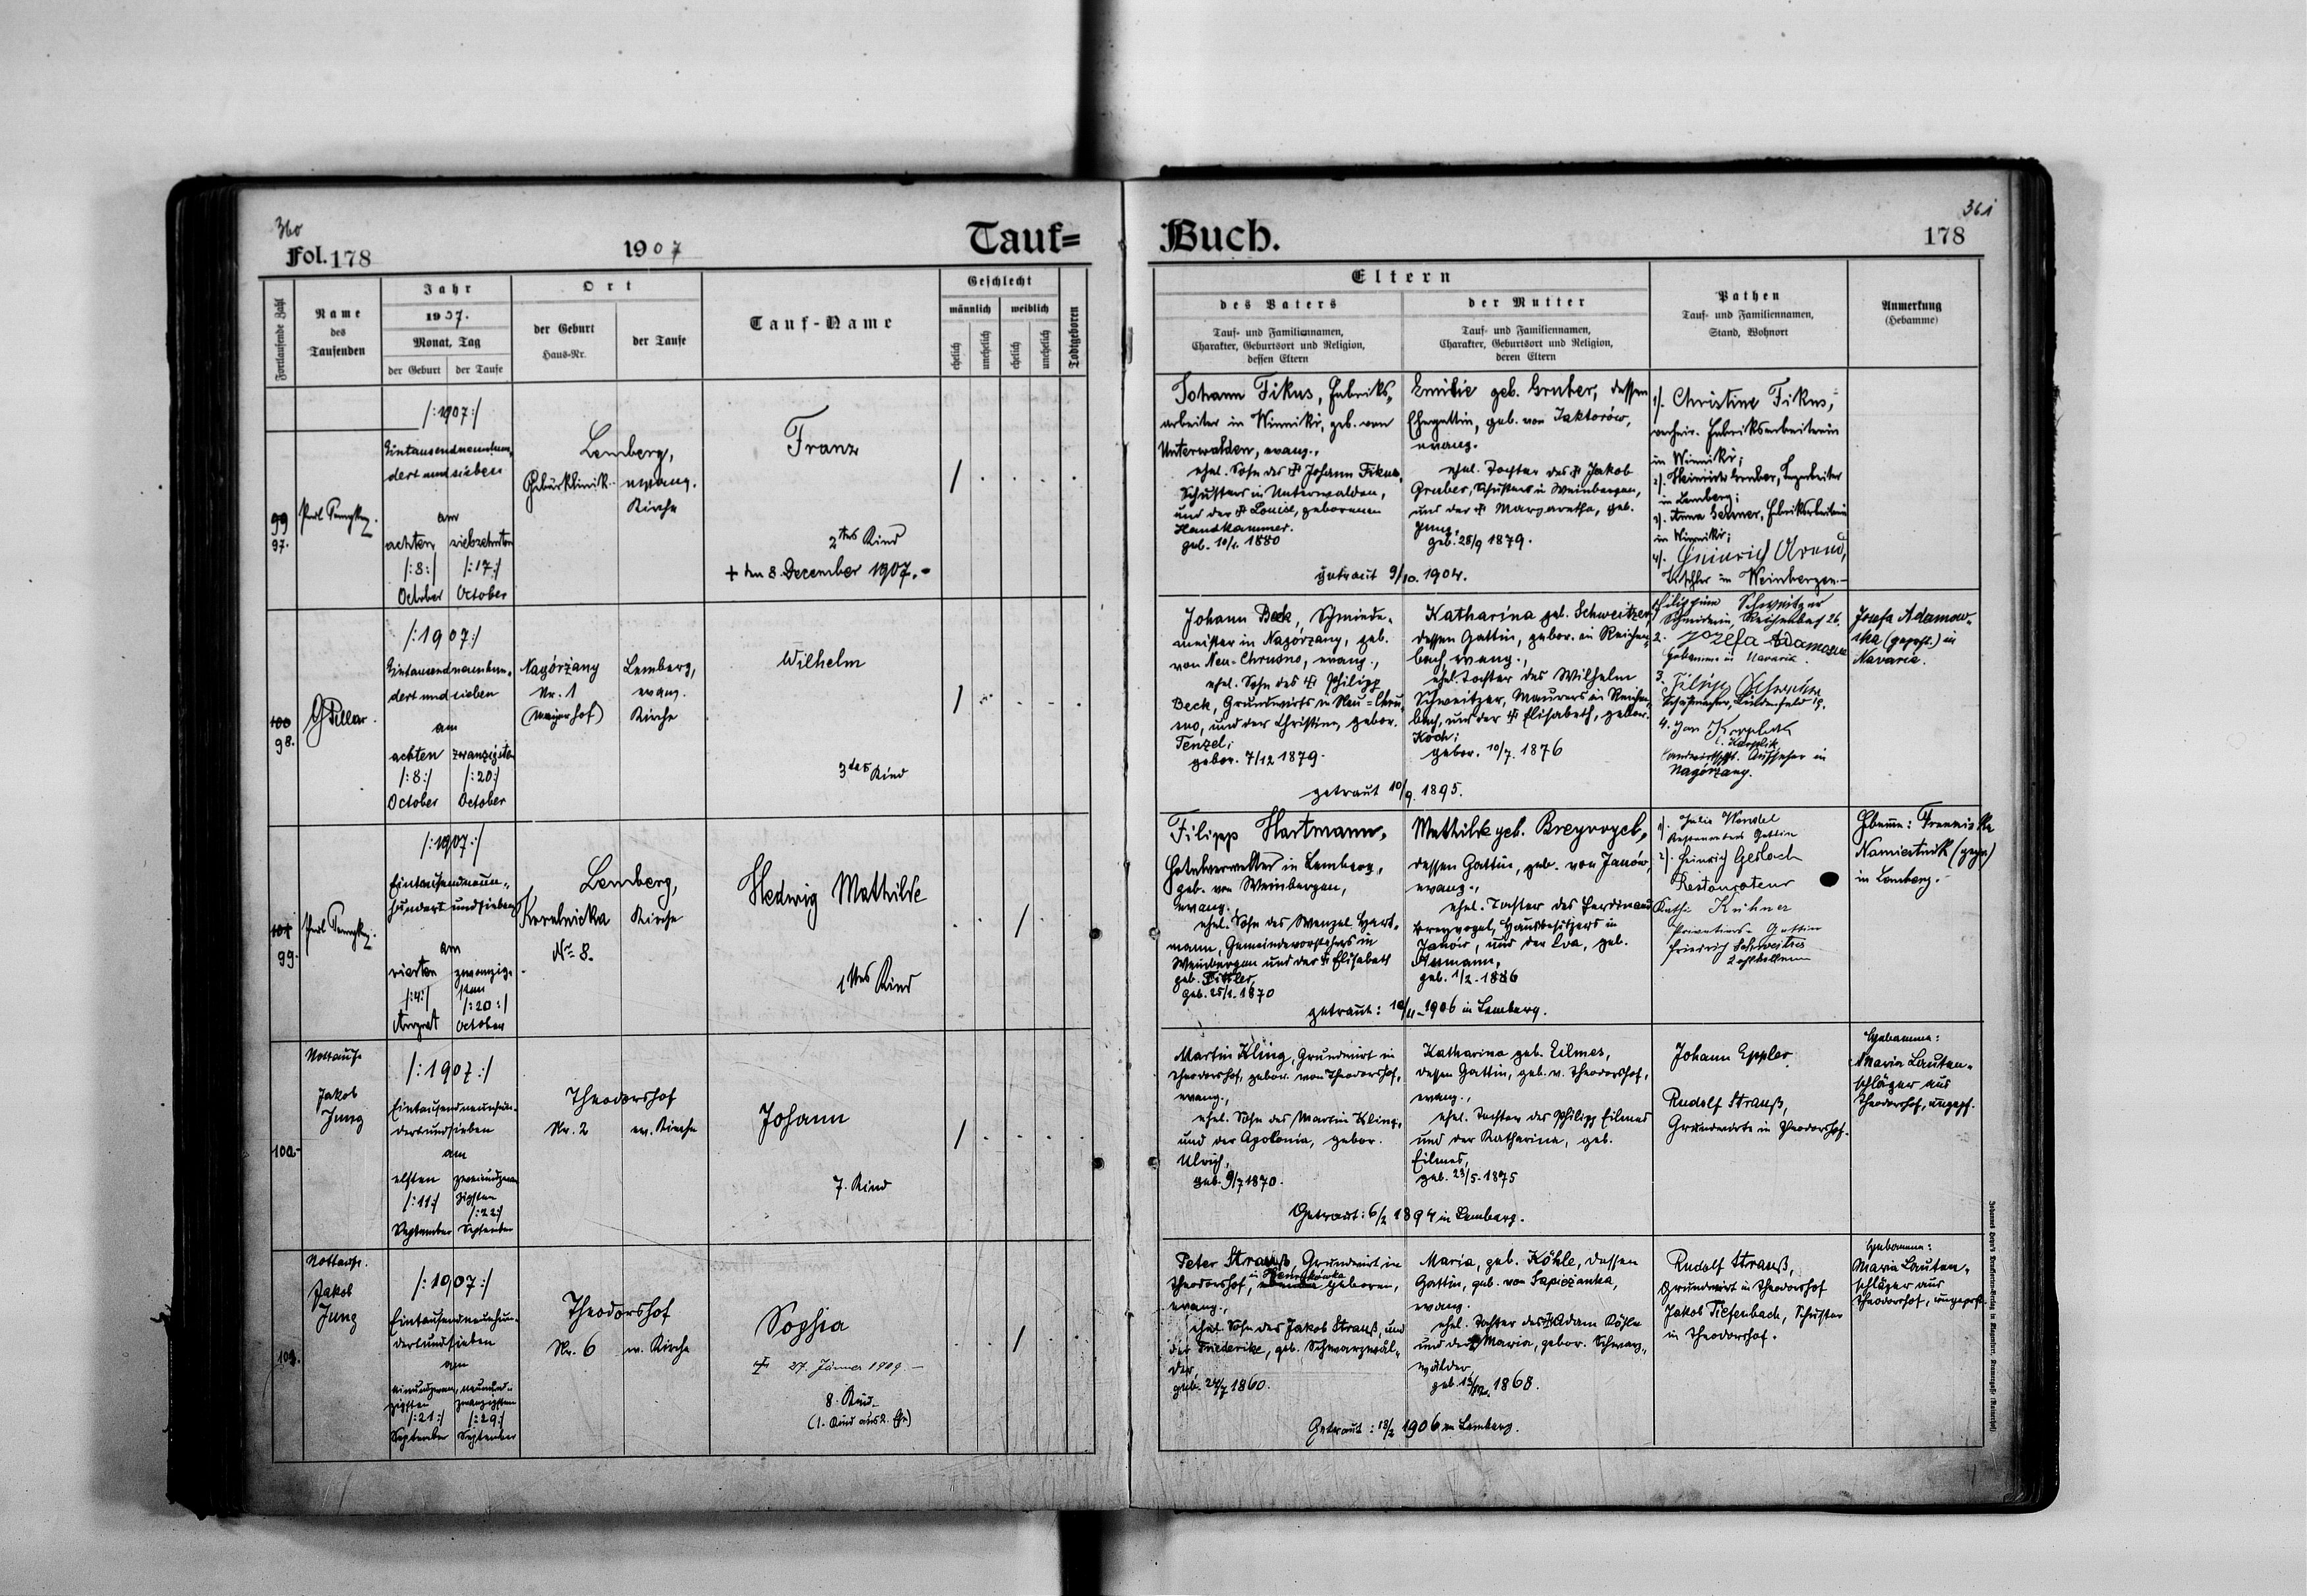 360
Fol. 178
1907
Tauf=
Fortlaufende Zahl
Name
des
Taufenden
Jahr
1907.
Monat, Tag
der Geburt
der Taufe
Ort
der Geburt
Haus-Nr.
der Taufe
Tauf-Name
Geschlecht
männlich
weiblich
ehelich
unehelich
ehelich
unehelich
Todtgeboren
99
97.
/:1907:/
Eintausendneunhun-
dert und sieben
am
achten
/:8:/
October
siebzehnten
/:17:/
October
Lemberg,
Gebärklinik
evang.
Kirche
Franz
2tes Kind
+ den 8. December 1907.-
100
98.
/:1907:/
Eintausendneunhun-
dert und sieben
am
achten
/:8:/
October
zwanzigsten
/:20:/
October
Nagórzany
Nr. 1
(Meierhof)
Lemberg,
evang.
Kirche
Wilhelm
3tes Kind
101
99.
/:1907:/
Eintausendneun-
hundert und sieben
am
vierten
/:4:/
August
zwanzig-
sten
/:20:/
October
Lemberg,
No 8.
Kirche
Hedwig Mathilde
1tes Kind
100.
Nottaufe
Jakob
Jung
/:1907:/
Eintausendneunhun-
dertundsieben
am
elften
/:11:/
September
zweiundzwan-
zigsten
/:22:/
September
Theodorshof
Nr. 2
ev. Kirche
Johann
7. Kind
101.
Nottaufe.
Jakob
Jung
/:1907:/
Eintausendneunhun-
dertundsieben
am
einundzwan-
zigsten
/:21:/
September
neunund-
zwanzigsten
/:29:/
September
Theodorshof
Nr. 6
ev. Kirche
Sophia
27. Jänner 1909.-
8. Kind
(1. Kind aus 2. Ehe)
361
Buch.
178
Eltern
des Vaters
Tauf- und Familiennamen,
Charakter, Geburtsort und Religion,
dessen Eltern
der Mutter
Tauf- und Familiennamen,
Charakter, Geburtsort und Religion,
deren Eltern
Pathen
Tauf- und Familiennamen,
Stand, Wohnort
Anmerkung
(Hebamme)
Johann Fikus, Fabriks-
arbeiter in Winniki, geb. von
Unterwalden, evang.,
ehel. Sohn des Johann Fikus,
Schusters in Unterwalden,
und der Louise, geborenen
Handkammer.
geb. 10/1. 1880
Emilie geb. Gruber, dessen
Ehegattin, geb. von Jaktorów,
evang.
ehel. Tochter des Jakob
Gruber, Schusters in Weinbergen,
und der Margaretha, geb.
Jung,
geb. 28/9 1879.
getraut 9/10. 1904.
1). Christine Fikus,
verheir. Fabriksarbeiterin
in Winniki;
in Lemberg;
in Winniki;
Tischler in Weinbergen.-
Johann Beck, Schmiede-
meister in Nagórzany, geb.
von Neu-Chrusno, evang.,
ehel. Sohn des Philipp
Beck, Grundwirts in Neu-Chrus-
no, und der Christina, gebor.
Tenzel;
gebor. 7/12 1879.
Katharina geb. Schweitzer,
dessen Gattin, gebor. in Reichen-
bach, evang.,
ehel. Tochter des Wilhelm
Schweitzer, Maurers in Reichen-
bach, und der Elisabeth, gebor.
Koch;
gebor. 10/7. 1876
getraut 10/9. 1895.
Philippine Schweitzer
Reichenbach 26.
2. Józefa Adamowska
Hebamme in Nawaria.
4. Jan Karplak
Landwirtschftl. Aufseher in
Nagórzany.
Josefa Adamow-
ska (geprft.) in
Navaria.
Filipp Hartmann,
Hotelverwalter in Lemberg,
geb. von Weinbergen,
evang.
ehel. Sohn des Wenzel Hart-
mann, Gemeindevorstehers in
Weinbergen und der Elisabeth
geb. Tittler,
geb. 25/1. 1870
Mathilde geb. Breyvogel,
dessen Gattin, geb. von Janów,
evang.,
ehel. Tochter des Ferdinand
Breyvogel, Hausbesitzers in
Janów, und der Eva, geb.
geb. 1/2. 1886
getraut: 10/11. 1906 in Lemberg.
1). Julie Wendel
Restaurateurs Gattin
2). Heinrich Gerlach
Restaurateur
Kath. Kühner
Privatiers-Gattin
Friedrich Schweitzer
Hebamme: Franciszka
Namiestnik (gepr.)
in Lemberg.-
Martin Kling, Grundwirt in
Theodorshof, gebor. von Theodorshof,
evang.,
ehel. Sohn des Martin Kling,
und der Apolonia, gebor.
Ulrich,
geb. 9/7 1870.
Katharina geb. Eilmes,
dessen Gattin, geb. v. Theodorshof,
evang.,
ehel. Tochter des Philipp Eilmes
und der Katharina, geb.
Eilmes,
geb. 23/5. 1875
Getraut: 6/2 1894 in Lemberg.
Johann Eppler
Rudolf Strauß,
Grundwirte in Theodorshof.
Hebamme:
Maria Lauten-
schläger aus
Theodorshof, ungeprf.
Peter Strauß, Grundwirt in
Theodorshof, geboren,
evang.,
ehel. Sohn des Jakob Strauß, und
der Friederike, geb. Schwarzwäl-
der,
geb. 24/7 1860.
Maria, geb. Köhle, dessen
Gattin, geb. von Sapiezanka,
evang.
ehel. Tochter des Adam Köhle
und der Maria, gebor. Schwarz-
wälder,
1868.
Getraut: 18/2 1906 in Lemberg.
Rudolf Strauß,
Grundwirt in Theodorshof
Jakob Tiefenbach, Schuster
in Theodorshof.
Hebamme:
Maria Lauten-
schläger aus
Theodorshof, ungeprft.